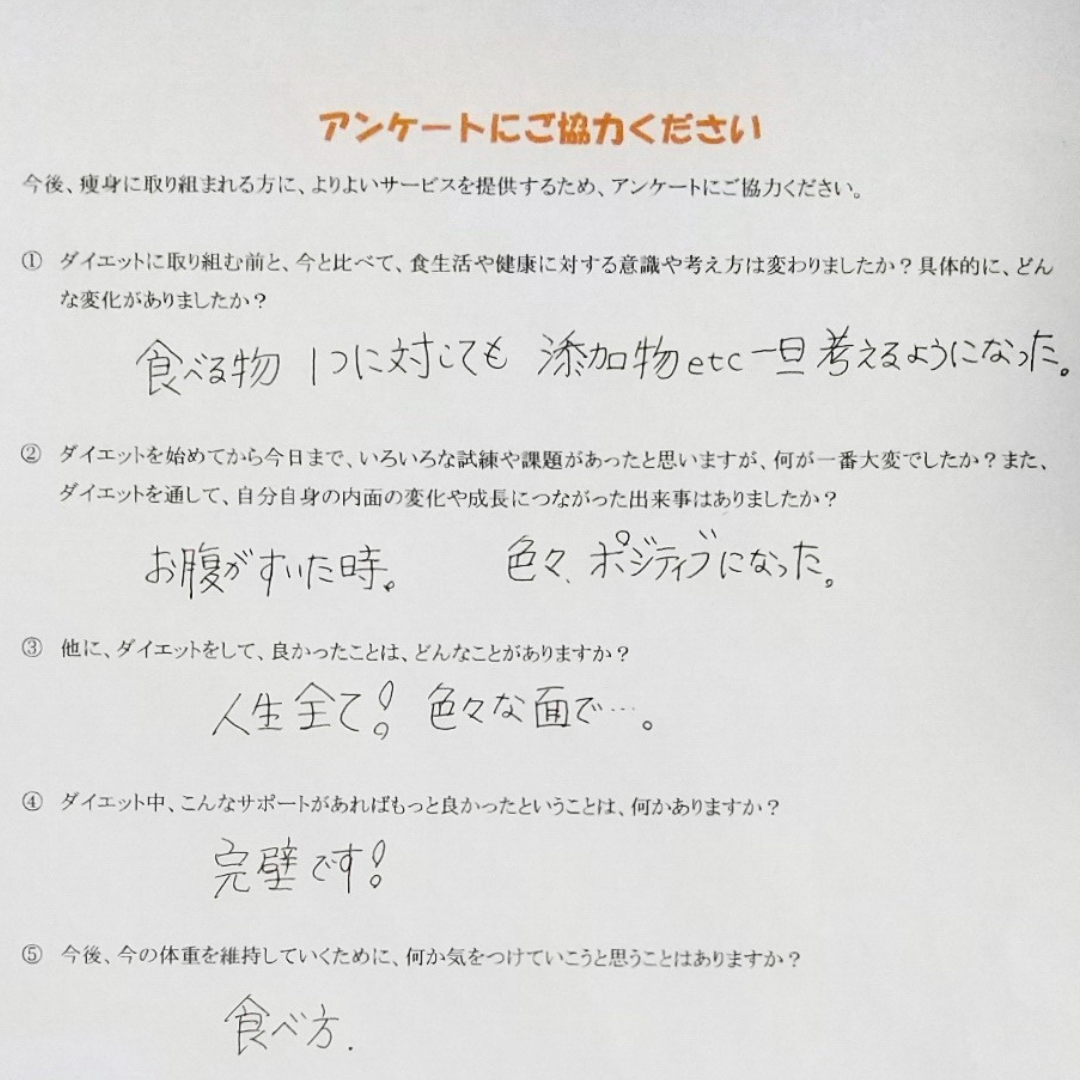 アンケートにご協力ください
今後、痩身に取り組まれる方に、よりよいサービスを提供するため、アンケートにご協力ください。
① ダイエットに取り組む前と、今と比べて、食生活や健康に対する意識や考え方は変わりましたか？具体的に、どん
な変化がありましたか？
食べる物 1つに対しても 添加物etc一旦考えるようになった。
② ダイエットを始めてから今日まで、いろいろな試練や課題があったと思いますが、何が一番大変でしたか？また、
ダイエットを通して、自分自身の内面の変化や成長につながった出来事はありましたか？
お腹がすいた時。 色々、ポジティブになった。
③ 他に、ダイエットをして、良かったことは、どんなことがありますか？
人生全て！ 色々な面で…。
④ ダイエット中、こんなサポートがあればもっと良かったということは、何かありますか？
完壁です！
⑤ 今後、今の体重を維持していくために、何か気をつけていこうと思うことはありますか？
食べ方.